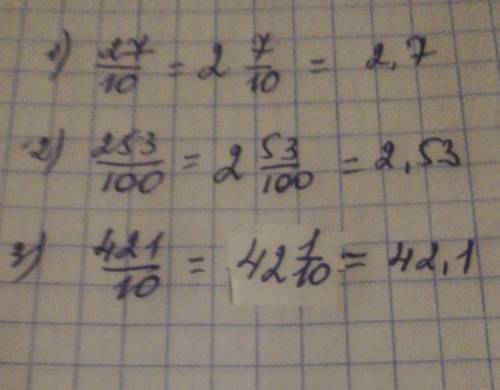 1) 27/10 = 2 7/10 = 2,7
2) 253/100 = 2 53/100 = 2,53
3) 421/10 = 42 1/10 = 42,1